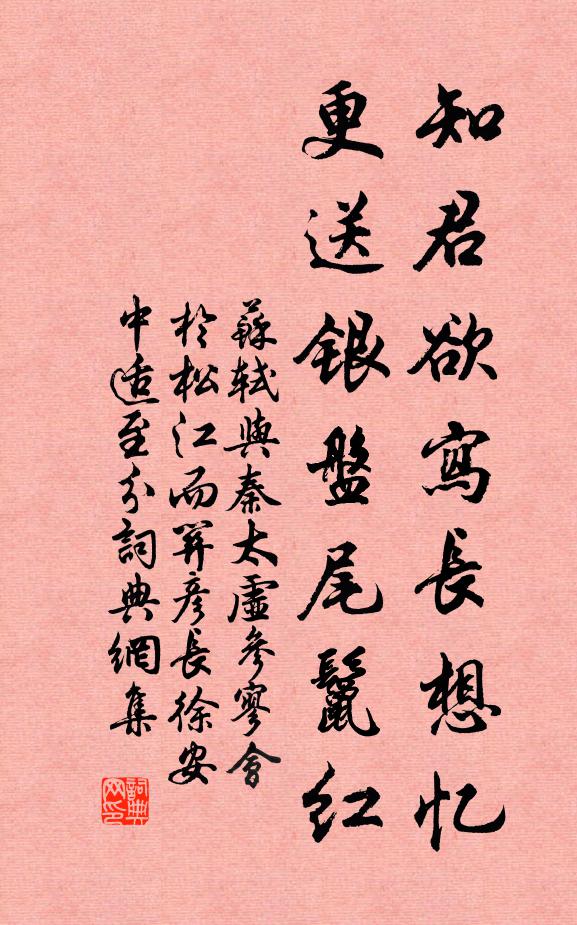 知君欲寫長想忆
更送銀盤尾鬣红
蘇軾與秦太虛參寥會
於松江而關彥長徐安
中适至分詞典網集
詞典网印